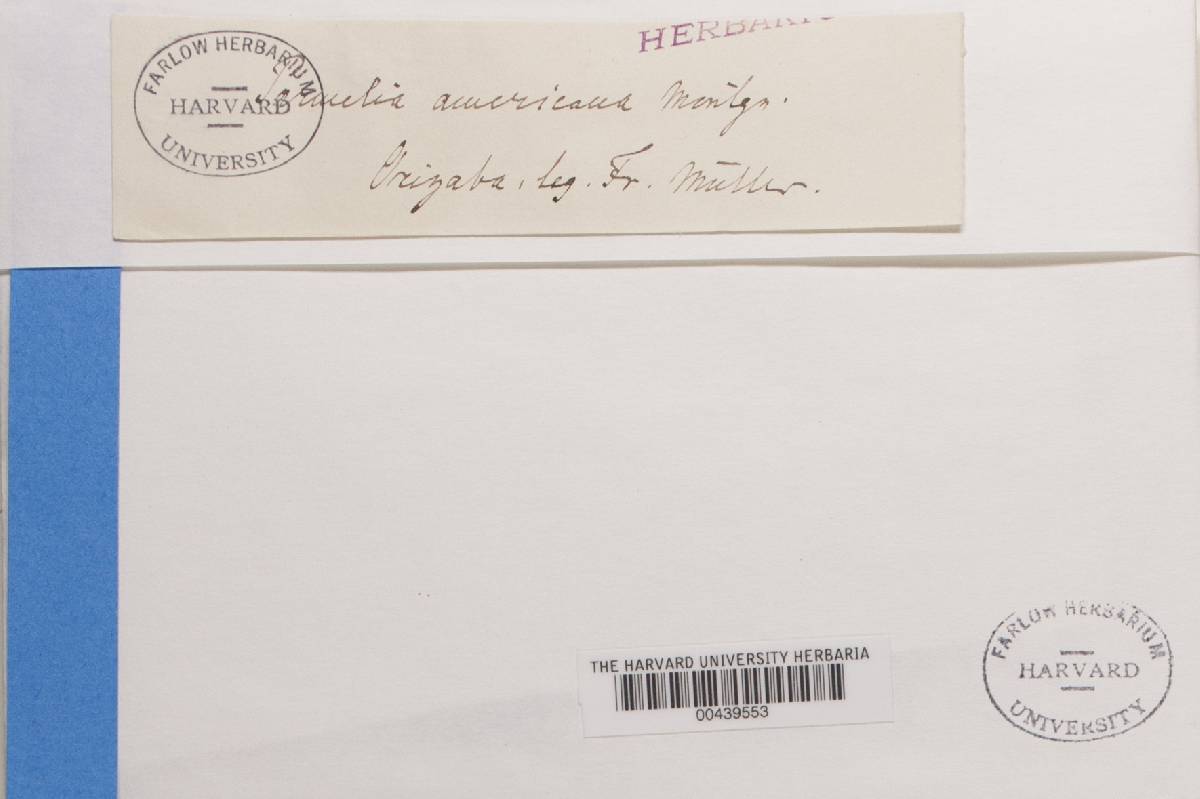 FARLOW HERBARIUM
HARVARD
UNIVERSITY
HERBARIU
Parmelia americana Montgn.
Orizaba, leg. Fr. Müller.
THE HARVARD UNIVERSITY HERBARIA
00439553
FARLOW HERBARIUM
HARVARD
UNIVERSITY